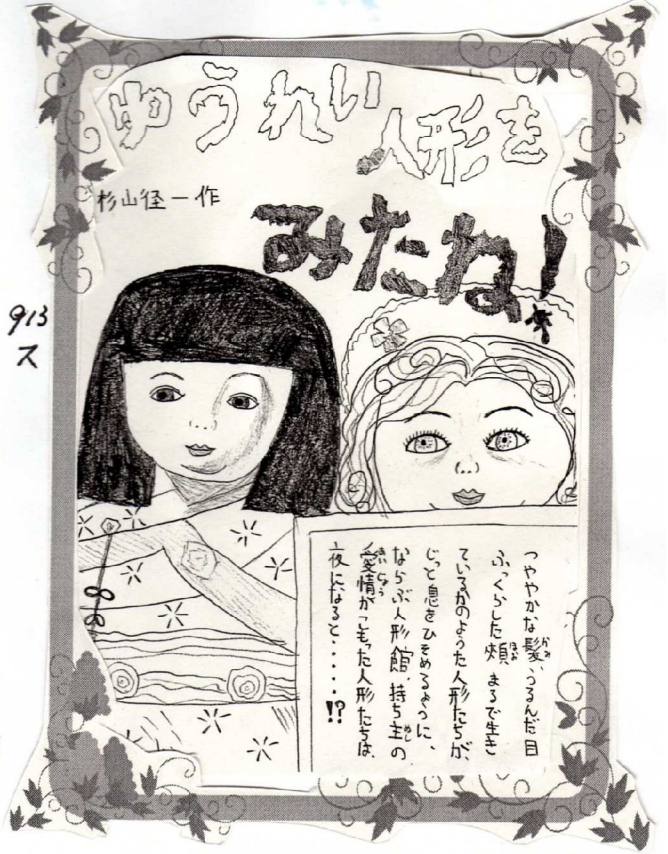 ゆうれい人形を
みたね!
杉山径一作
913
ス
つややかな髪、うるんだ目
ふっくらした頬、まるで生き
ているかのような人形たちが、
じっと息をひそめるように、
ならぶ人形館、持ち主の
愛情がこもった人形たちは、
夜になると・・・・・!?